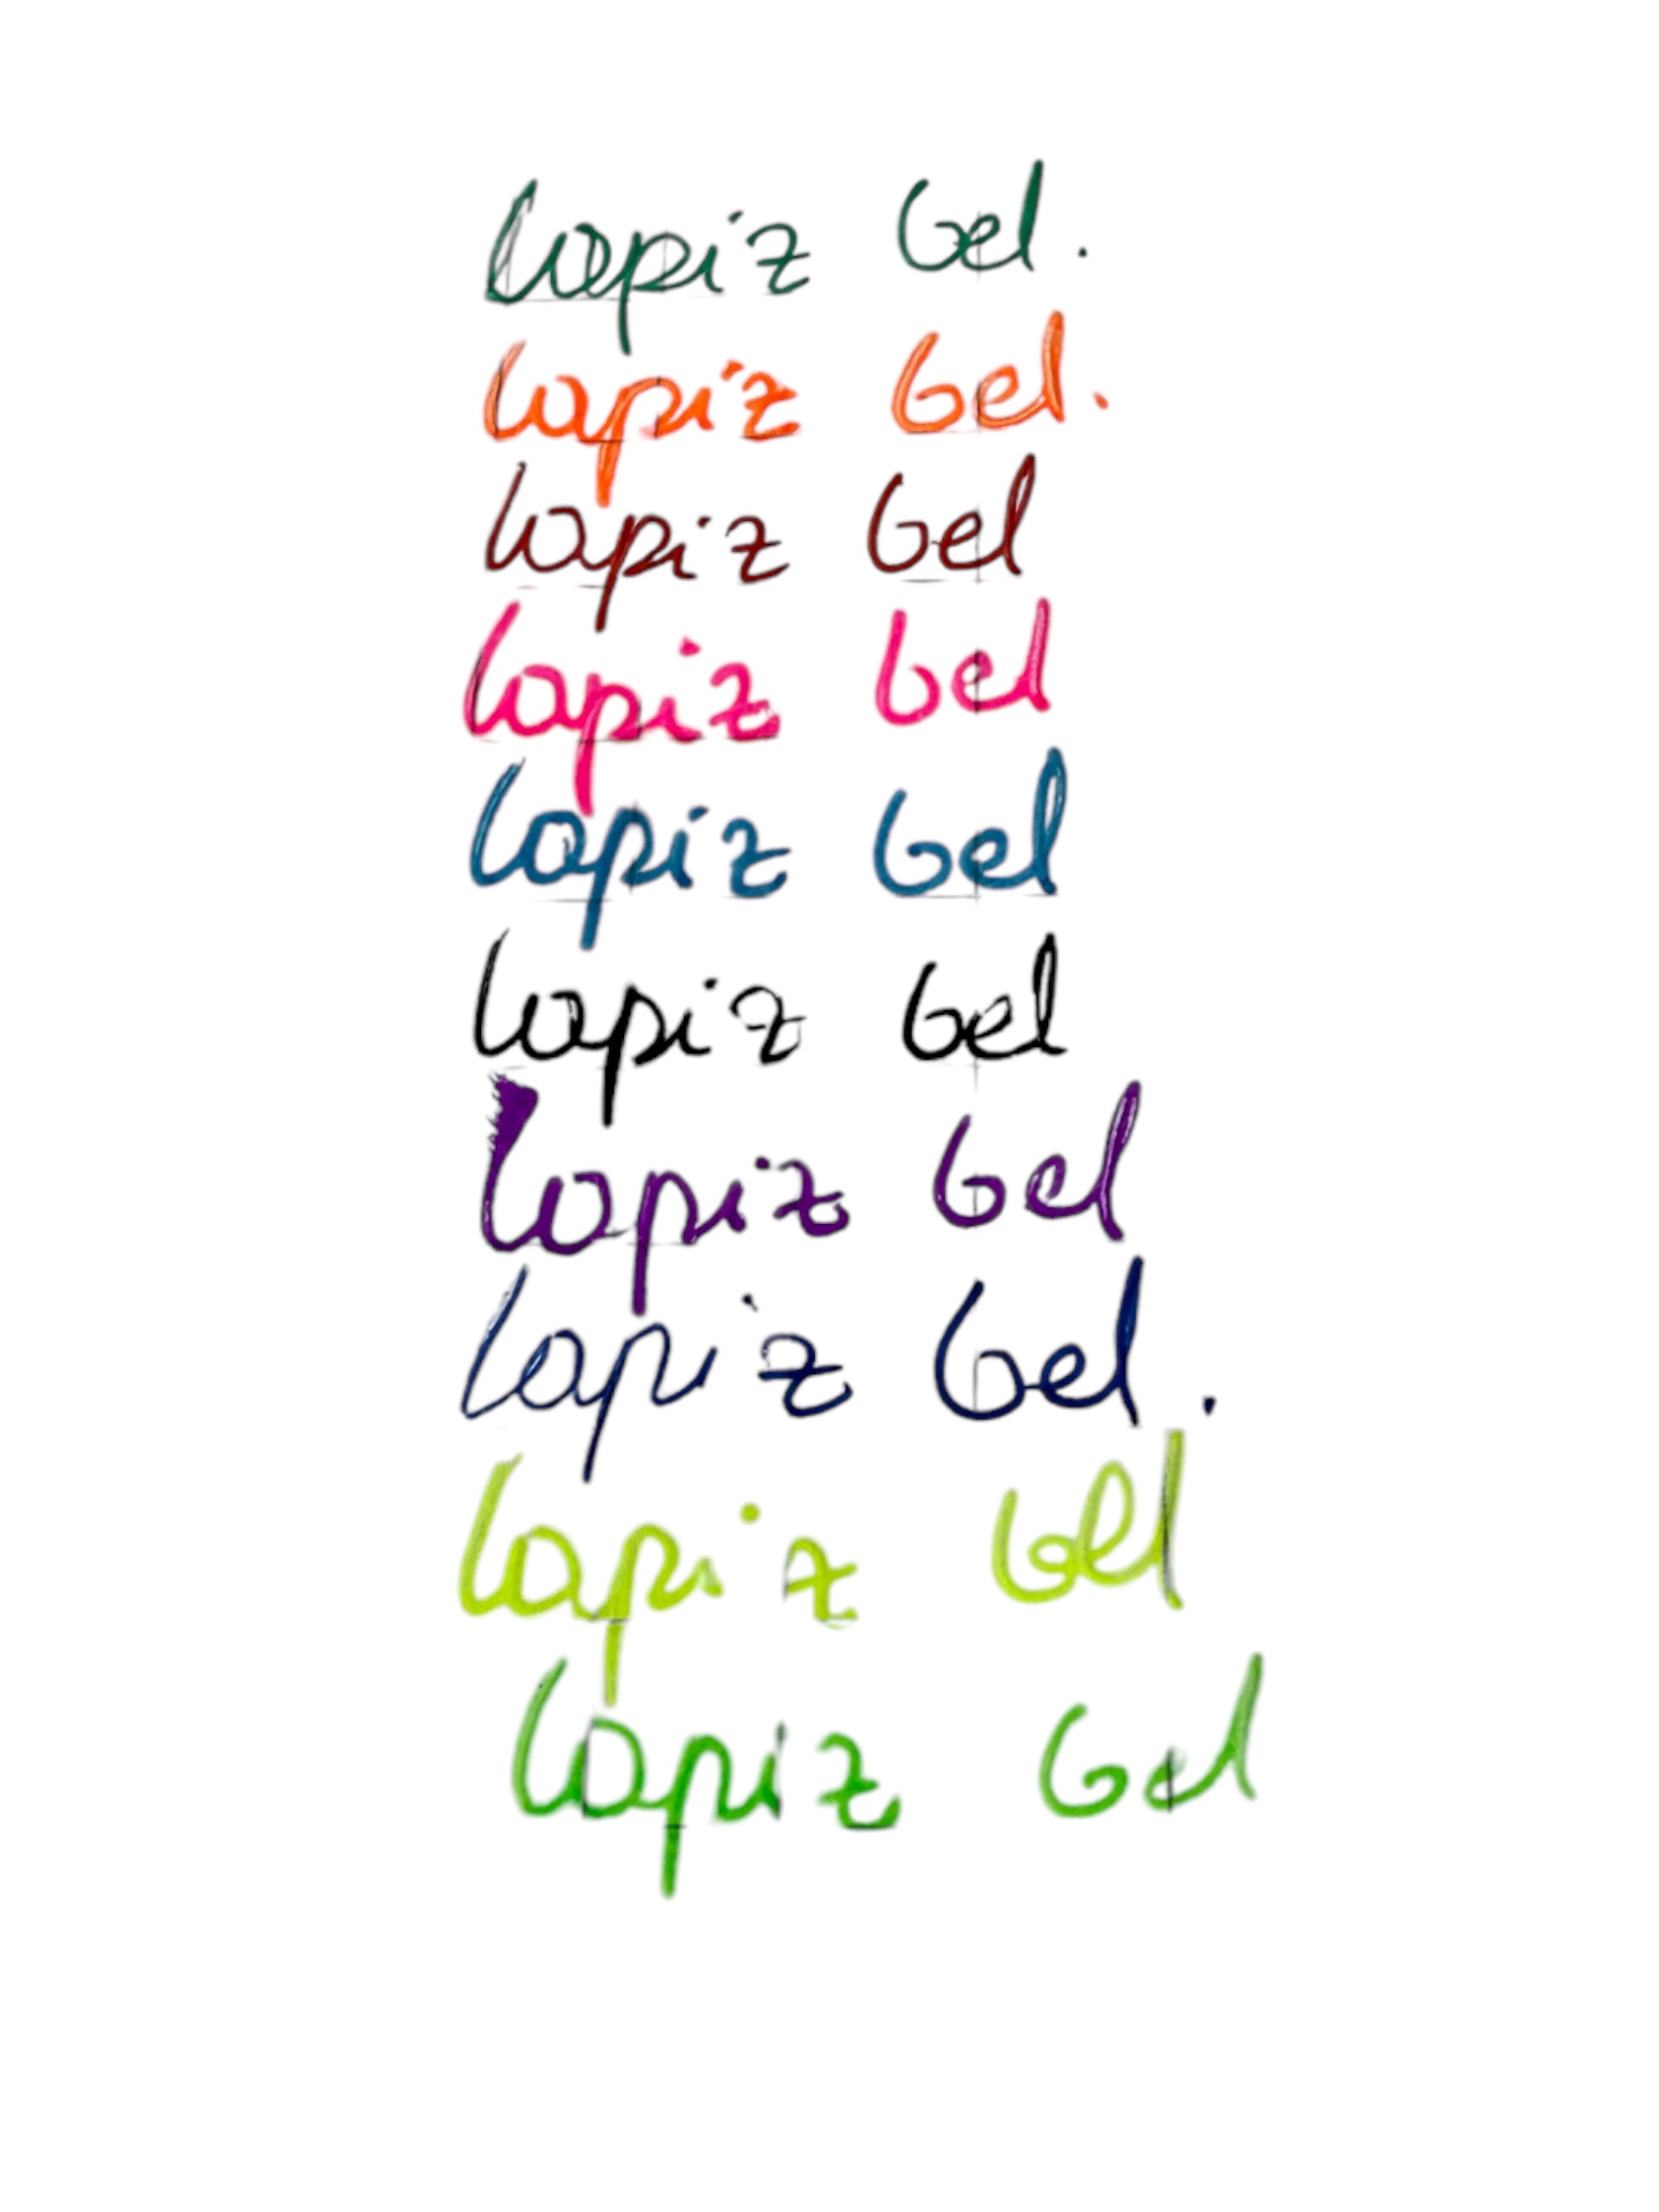 Lapiz Gel.
Lapiz Gel.
Lapiz Gel
Lapiz Gel
Lapiz Gel
Lapiz Gel
Lapiz Gel
Lapiz Gel.
Lapiz Gel
Lapiz Gel